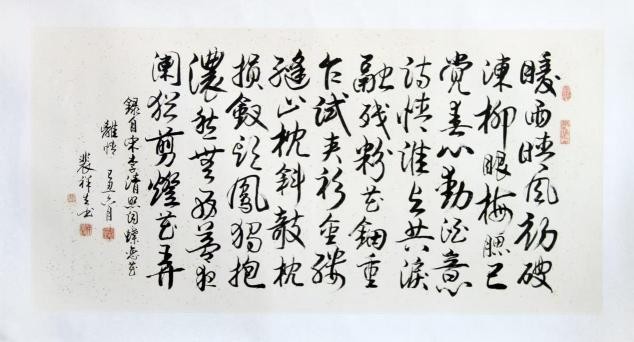 暖雨晴風初破
凍柳眼梅腮已
覺春心動酒意
詩情誰与共淚
融殘粉花鈿重
乍試夾衫金縷
縫山枕斜敧枕
損釵頭鳳獨抱
濃愁無好夢夜
闌猶剪燈花弄
録自宋李清照詞蝶恋花
離情 己丑六月
裴祥书